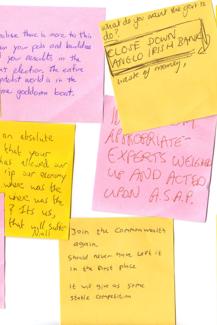 alise there is more to this
your pals and
your results in the
election. The entire
world is in the
goddamn boat.
What do you want the govt to
do?
CLOSE DOWN
ANGLO IRISH BANK
waste of money,
an absolute
that your
has allowed our
rip our economy
where was the
where was the
? Its us,
that will suffer
Niall
APPROPRIATE -
EXPERTS WELCOME
AND ACTED
UPON A.S.A.P.
Join the commonwealth
again
Should never have left it
in the first place
It will give us some
stable competition